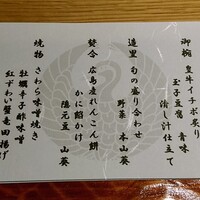 御椀 黒牛イチボ炙り
玉子豆腐 青味
清し汁仕立て
造里 旬の盛り合わせ
野菜 本山葵
焚合 広島産れんこん餅
かに餡かけ
隠元豆 山葵
焼物 さわら味噌焼き
牡蠣辛子酢味噌
紅ずわい蟹竜田揚げ